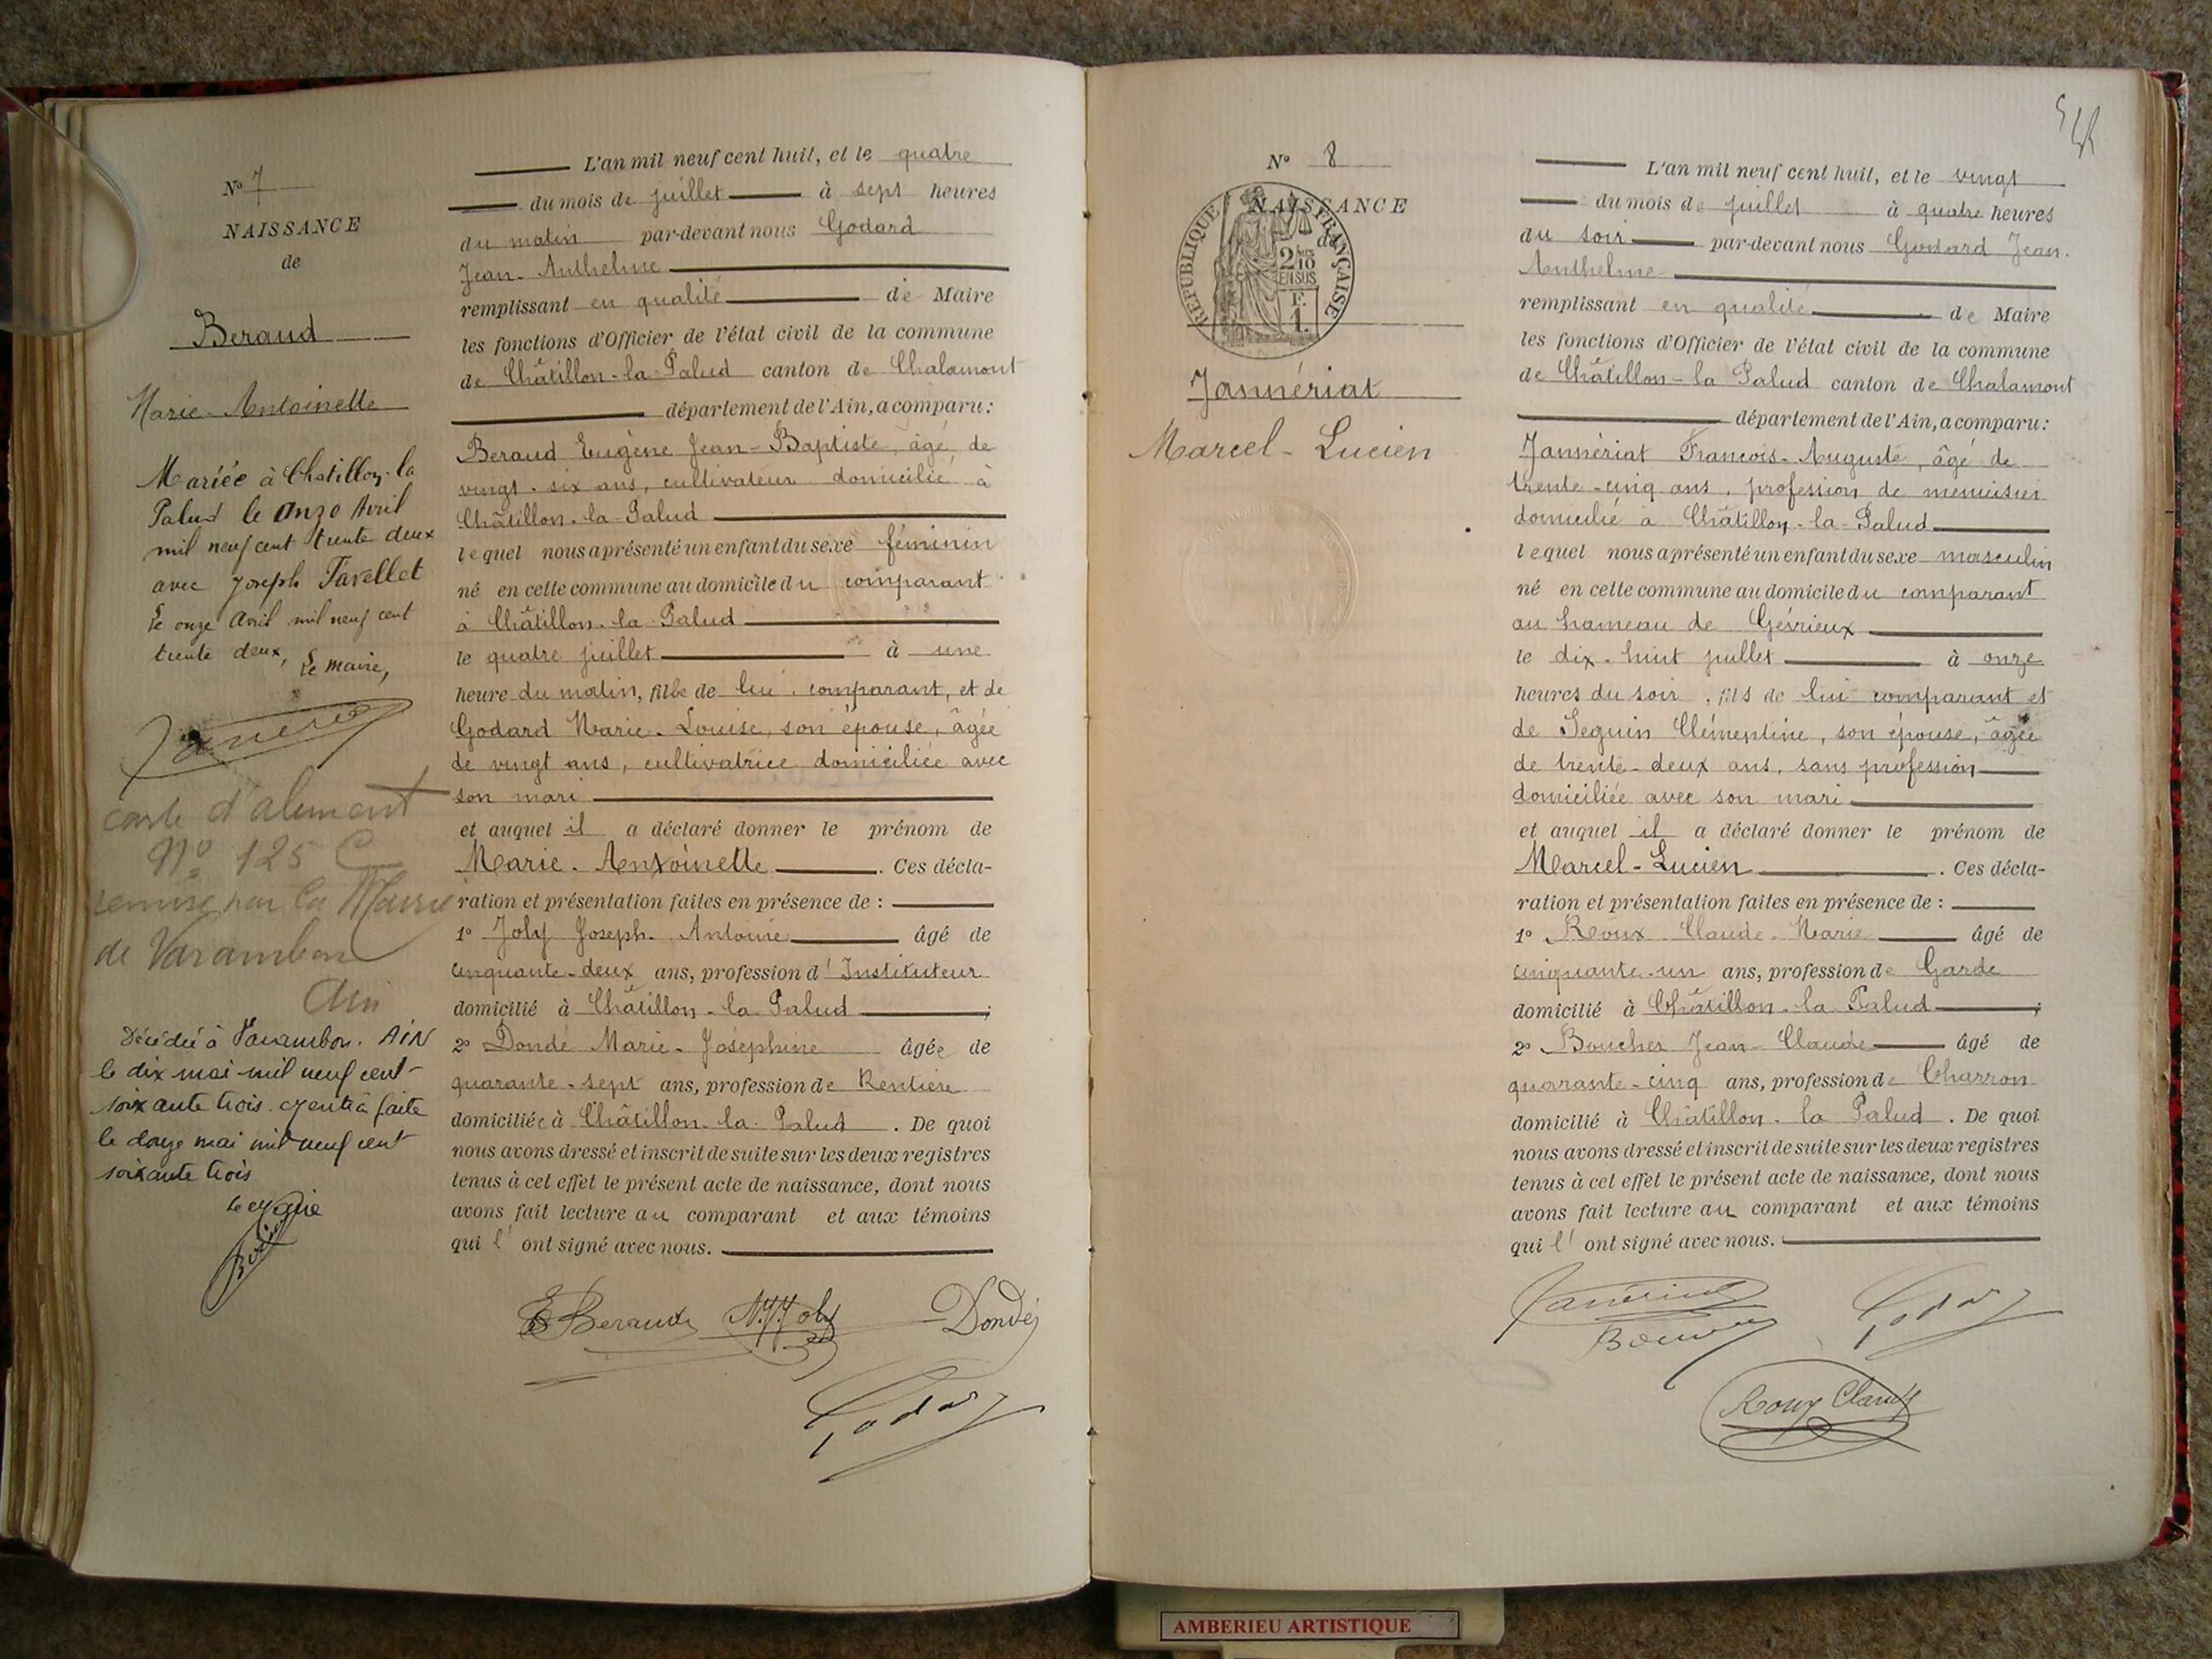 N° 7
NAISSANCE
de
Beraud
Marie-Antoinette
Mariée à Chatillon-la
Palud le onze Avril
mil neuf cent trente deux
avec Joseph Favellet
Le onze Avril mil neuf cent
trente deux, Le maire,
carte d'aliment
N° 125 C
remise par la Mairie
de Varambon
Ain
Décédée à Varambon. AIN
le dix mai mil neuf cent-
soixante trois. faite
le douze mai mil neuf cent
soixante trois
Le Maire
L'an mil neuf cent huit, et le quatre
du mois de juillet à sept heures
du matin par-devant nous Godard
Jean-Anthelme
remplissant en qualité de Maire
les fonctions d'Officier de l'état civil de la commune
de Châtillon-la-Palud canton de Chalamont
département de l'Ain, a comparu:
Beraud Eugène Jean-Baptiste, âgé de
vingt-six ans, cultivateur domicilié à
Châtillon-la-Palud
lequel nous a présenté un enfant du sexe féminin
né en cette commune au domicile du comparant
à Châtillon-la-Palud
le quatre juillet à une
heure du matin, fille de lui comparant, et de
Godard Marie-Louise, son épouse, âgée
de vingt ans, cultivatrice domiciliée avec
son mari
et auquel il a déclaré donner le prénom de
Marie-Antoinette. Ces décla-
ration et présentation faites en présence de :
1° Joly Joseph-Antoine âgé de
cinquante-deux ans, profession d'Instituteur
domicilié à Châtillon-la-Palud ;
2° Dondé Marie-Joséphine âgée de
quarante-sept ans, profession de Rentière
domiciliée à Châtillon-la-Palud. De quoi
nous avons dressé et inscrit de suite sur les deux registres
tenus à cet effet le présent acte de naissance, dont nous
avons fait lecture au comparant et aux témoins
qui l' ont signé avec nous.
E Beraud Joly Dondé
Godard
N° 8
NAISSANCE
de
REPUBLIQUE FRANÇAISE
2/10
EN SUS
F.
1.
Jannériat
Marcel-Lucien
L'an mil neuf cent huit, et le vingt
du mois de juillet à quatre heures
du soir par-devant nous Godard Jean-
Anthelme
remplissant en qualité de Maire
les fonctions d'Officier de l'état civil de la commune
de Châtillon-la Palud canton de Chalamont
département de l'Ain, a comparu:
Jannériat Francois-Auguste, âgé de
trente-cinq ans, profession de menuisier
domicilié à Châtillon-la-Palud
lequel nous a présenté un enfant du sexe masculin
né en cette commune au domicile du comparant
au hameau de Gévrieux
le dix-huit juillet à onze
heures du soir, fils de lui comparant et
de Seguin Clémentine, son épouse, âgée
de trente-deux ans, sans profession
domiciliée avec son mari
et auquel il a déclaré donner le prénom de
Marcel-Lucien. Ces décla-
ration et présentation faites en présence de :
1° Roux Claude-Marie âgé de
cinquante-un ans, profession de Garde
domicilié à Châtillon-la-Palud ;
2° Bouches Jean-Claude âgé de
quarante-cinq ans, profession de Charron
domicilié à Châtillon-la Palud. De quoi
nous avons dressé et inscrit de suite sur les deux registres
tenus à cet effet le présent acte de naissance, dont nous
avons fait lecture au comparant et aux témoins
qui l' ont signé avec nous.
Godard
Roux Claude
AMBERIEU ARTISTIQUE